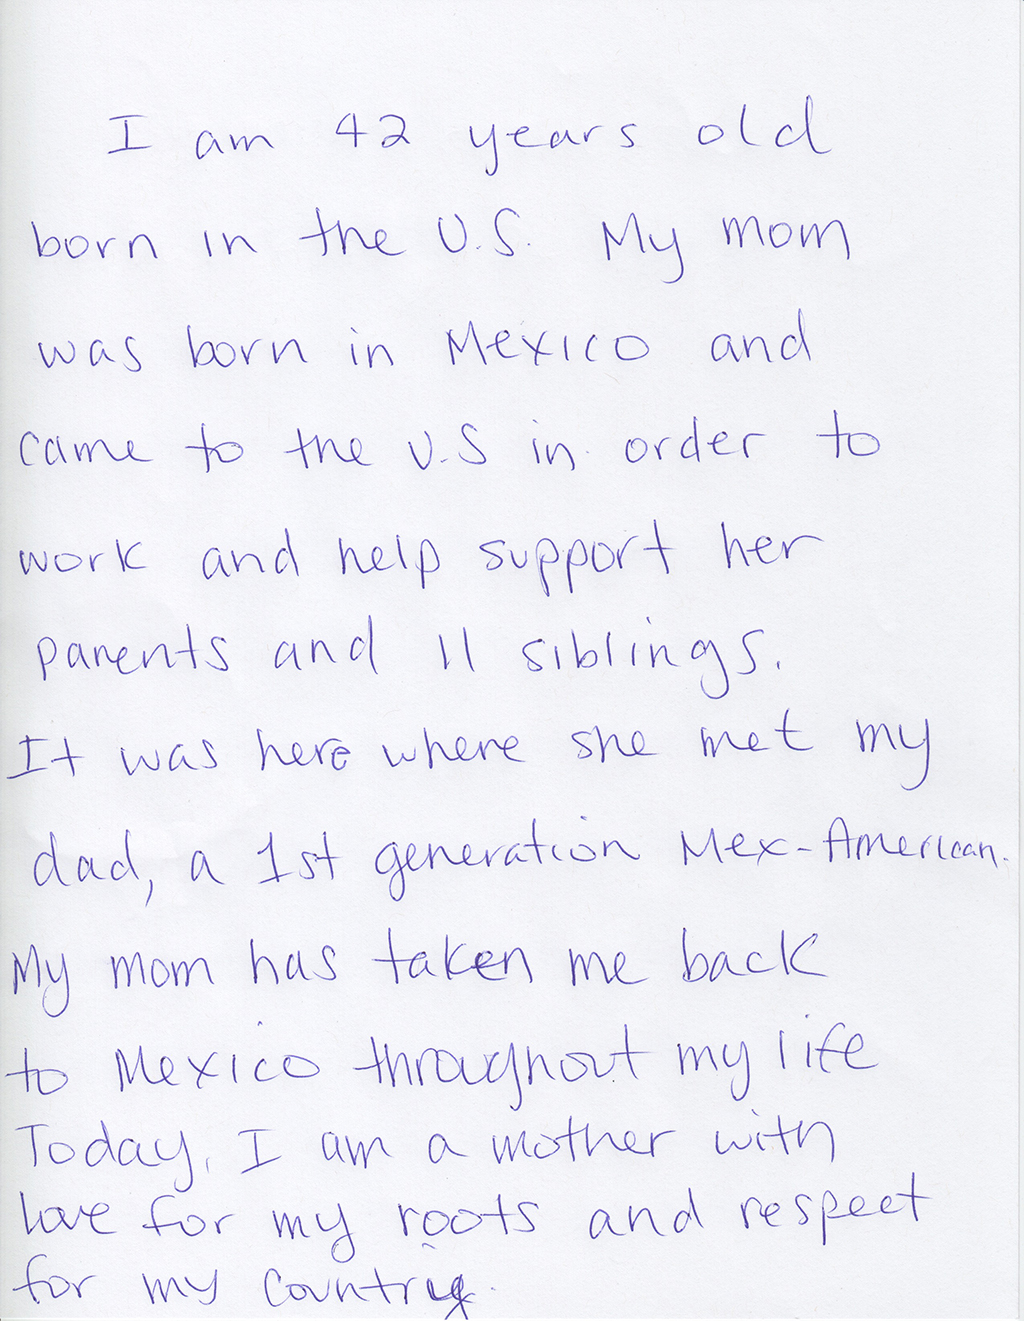 I am 42 years old
born in the U.S. My mom
was born in Mexico and
came to the U.S in order to
work and help support her
parents and 11 siblings.
It was here where she met my
dad, a 1st generation Mex-American.
My mom has taken me back
to Mexico throughout my life
Today, I am a mother with
love for my roots and respect
for my country.